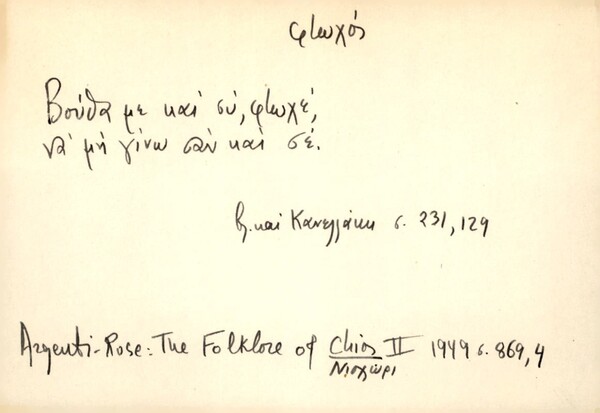 φτωχός
Βούθα με καί σύ, φτωχέ,
νά μή γίνω σάν καί σέ.
βλ. καί Κανελλάκη σ. 231, 129
Argenti-Rose: The Folklore of Chios II 1949 σ. 869, 4
Νιοχώρι